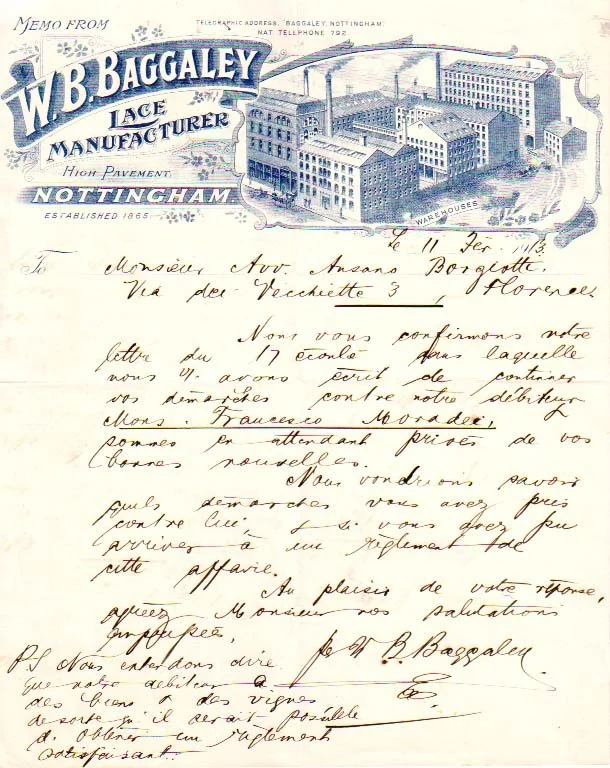 MEMO FROM
TELEGRAPHIC ADDRESS, "BAGGALEY, NOTTINGHAM"
NAT. TELEPHONE 792
W. B. BAGGALEY
LACE
MANUFACTURER
HIGH PAVEMENT,
NOTTINGHAM.
ESTABLISHED 1865
WAREHOUSES
Le 11 Fev. 1913.
To Monsieur Avv. Ansano Borgiotti.
Via dei Vecchiette 3, Florence.
Nous vous confirmons notre
lettre du 17 écoulé dans laquelle
nous avons écrit de continuer
vos démarches contre notre débiteur
Mons. Francesco Moradei,
sommes en attendant privés de vos
bonnes nouvelles.
Nous voudrions savoir
quels démarches vous avez pris
contre lui, & si vous avez pu
arriver à un règlement de
cette affaire.
Au plaisir de votre réponse,
agréez Monsieur nos salutations
W B. Baggaley
PS Nous entendons dire
que notre débiteur a
des biens & des vignes
de sorte qu'il serait possible
d'obtenir un règlement
satisfaisant.